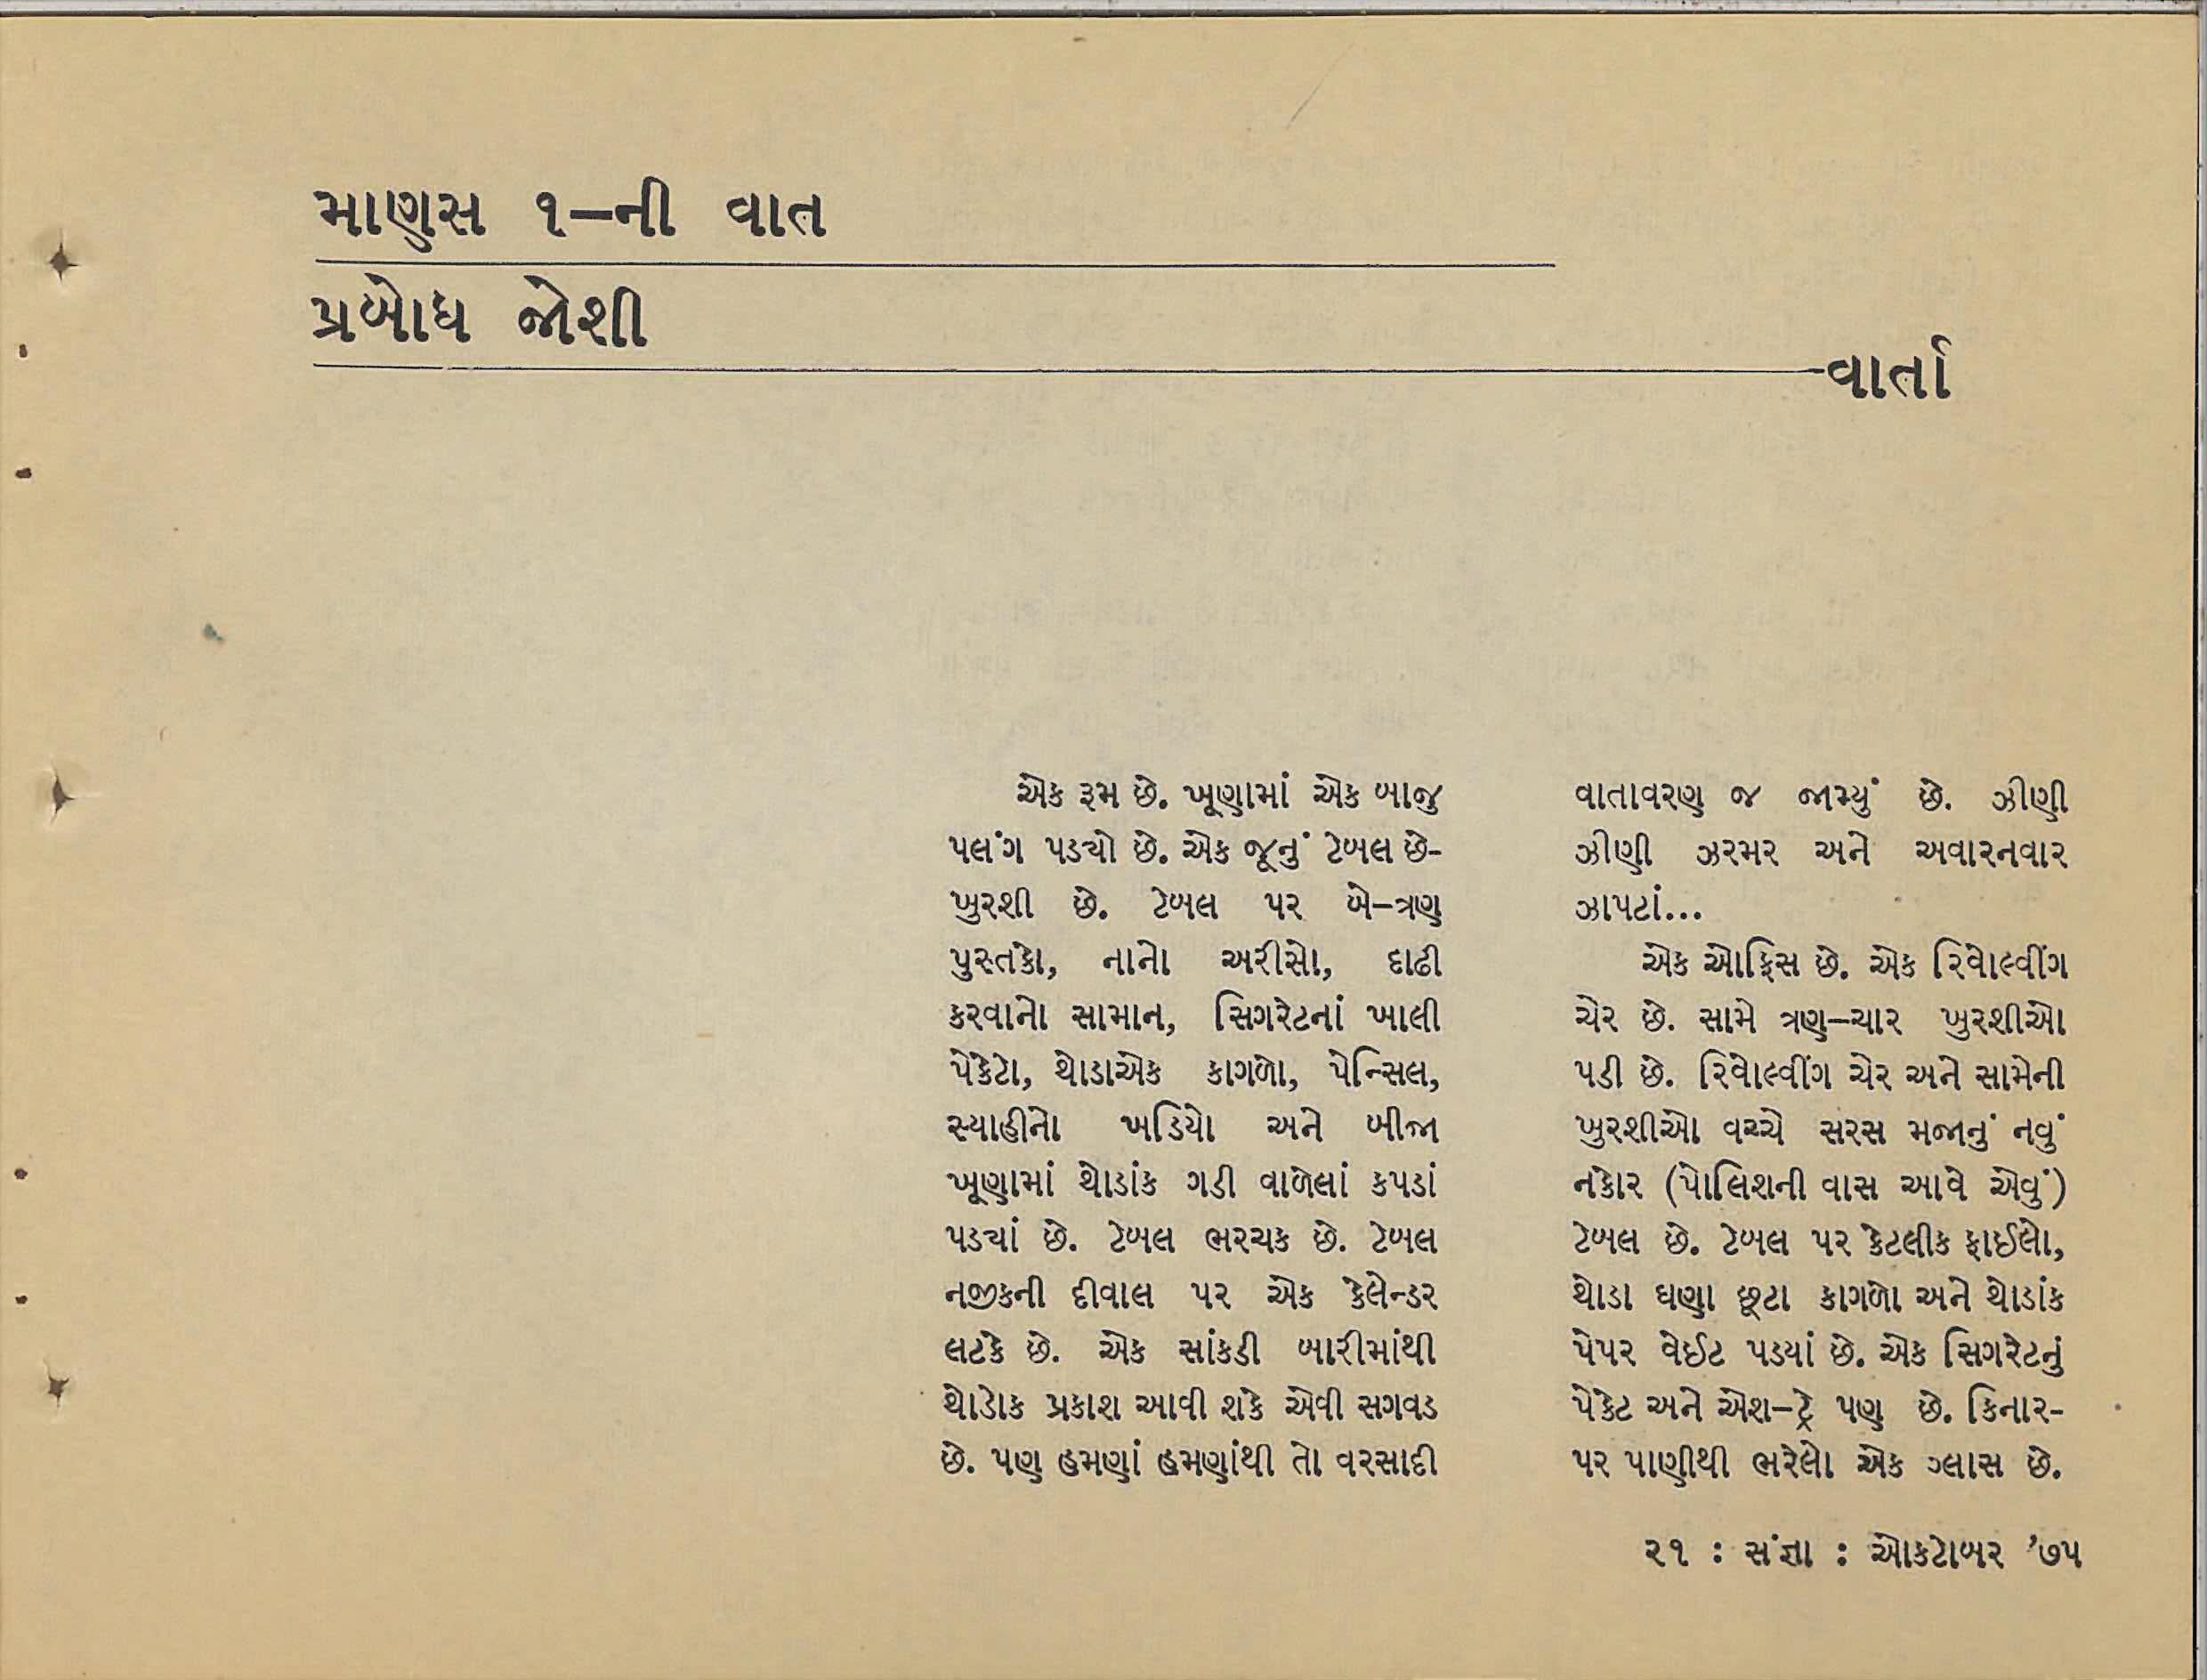 માણસ ૧–ની વાત
પ્રબોધ જોશી
વાર્તા
એક રૂમ છે. ખૂણામાં એક બાજુ
પલંગ પડ્યો છે. એક જૂનું ટેબલ છે-
ખુરશી છે. ટેબલ પર બે–ત્રણ
પુસ્તકો, નાનો અરીસો, દાઢી
કરવાનો સામાન, સિગરેટનાં ખાલી
પેકેટો, થોડાએક કાગળો, પેન્સિલ,
સ્યાહીનો ખડિયો અને બીજા
ખૂણામાં થોડાંક ગડી વાળેલાં કપડાં
પડ્યાં છે. ટેબલ ભરચક છે. ટેબલ
નજીકની દીવાલ પર એક કેલેન્ડર
લટકે છે. એક સાંકડી બારીમાંથી
થોડોક પ્રકાશ આવી શકે એવી સગવડ
છે. પણ હમણાં હમણાંથી તો વરસાદી
વાતાવરણ જ જામ્યું છે. ઝીણી
ઝીણી ઝરમર અને અવારનવાર
ઝાપટાં...
એક ઓફિસ છે. એક રિવોલ્વીંગ
ચેર છે. સામે ત્રણ–ચાર ખુરશીઓ
પડી છે. રિવોલ્વીંગ ચેર અને સામેની
ખુરશીઓ વચ્ચે સરસ મજાનું નવું
નકોર (પોલિશની વાસ આવે એવું)
ટેબલ છે. ટેબલ પર કેટલીક ફાઈલો,
થોડા ઘણા છૂટા કાગળો અને થોડાંક
પેપર વેઈટ પડયાં છે. એક સિગરેટનું
પેકેટ અને એશ–ટ્રે પણ છે. કિનાર-
પર પાણીથી ભરેલો એક ગ્લાસ છે.
૨૧ : સંજ્ઞા : ઓકટોબર '૭૫